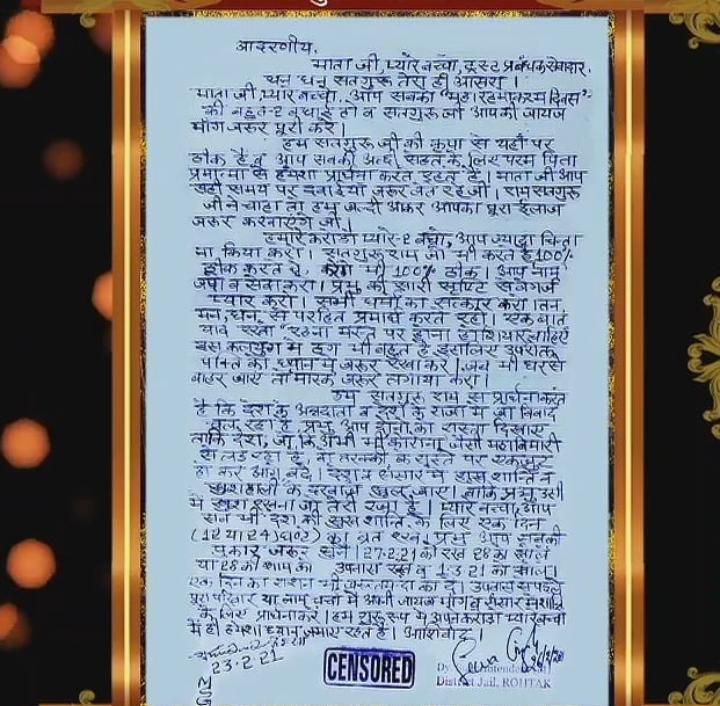 आदरणीय,
माता जी, प्यारे बच्चो, ट्रस्ट प्रबंधक सेवादार,
धन धन सतगुरु तेरा ही आसरा।
माता जी, प्यारे बच्चो, आप सबको "महा रहमोकरम दिवस"
की बहुत-2 बधाई हो व सतगुरु जी आपकी जायज
मांग जरूर पूरी करें।
हम सतगुरु जी की कृपा से यहाँ पर
ठीक हैं व आप सबकी अच्छी सेहत के लिए परम पिता
परमात्मा से हमेशा प्रार्थना करते रहते हैं। माता जी आप
सही समय पर दवाईयां जरूर लेते रहें जी। राम सतगुरु
जी ने चाहा तो हम जल्दी आकर आपका पूरा ईलाज
जरूर करवाएंगे जी।
हमारे करोड़ों प्यारे-2 बच्चो, आप ज्यादा चिंता
ना किया करो। सतगुरु राम जो भी करते हैं 100%
ठीक करते हैं, करेंगे भी 100% ठीक। आप नाम
जपो व सेवा करो। प्रभु की सारी सृष्टि से बेगर्ज
प्यार करो। सभी धर्मों का सत्कार करो। तन,
मन, धन, से परहित परमार्थ करते रहो। एक बात
याद रखो "रहना मस्त पर होना होशियार चाहिए"
इस कलयुग में ठग भी बहुत हैं इसलिए उपरोक्त
पंक्ति का ध्यान में जरूर रखा करें। जब भी घर से
बाहर जाएं तो मास्क जरूर लगाया करो।
हम सतगुरु राम से प्रार्थना करते
हैं कि देश के अन्नदाता व देश के राजा में जो विवाद
चल रहा है, प्रभु आप दोनों को रास्ता दिखाएं
ताकि देश, जो कि अभी भी कोरोना जैसी महाबिमारी
से लड़ रहा है, वो तरक्की के रास्ते पर एकजुट
हो कर आगे बढ़े। देश व संसार में सुख शान्ति व
खुशहाली के दरवाजे खुल जाएं। बाकि प्रभु उसी
में खुश रखना जो तेरी रजा है। प्यारे बच्चो, आप
सब भी देश की सुख शान्ति के लिए एक दिन
(12 या 24) घण्टे) का व्रत रखें, प्रभु आप सबकी
पुकार जरूर सुनें। 27-2-21 को रखें 28 को खोलें
या 28 को शाम को उपवास रखें व 1-3-21 को खोलें।
एक दिन का राशन भी जरूरतमंदों को दें। उपवास से पहले
पूरा परिवार या नाम चर्चा में अपनी जायज मांग व संसार में शान्ति
के लिए प्रार्थना करें। हम गुरु रूप में अपने करोड़ों प्यारे बच्चों
में ही हमेशा ध्यान जमाए रखते हैं। आशिर्वाद।
23-2-21
MSG
CENSORED
Dy. Superintendent
District Jail, ROHTAK